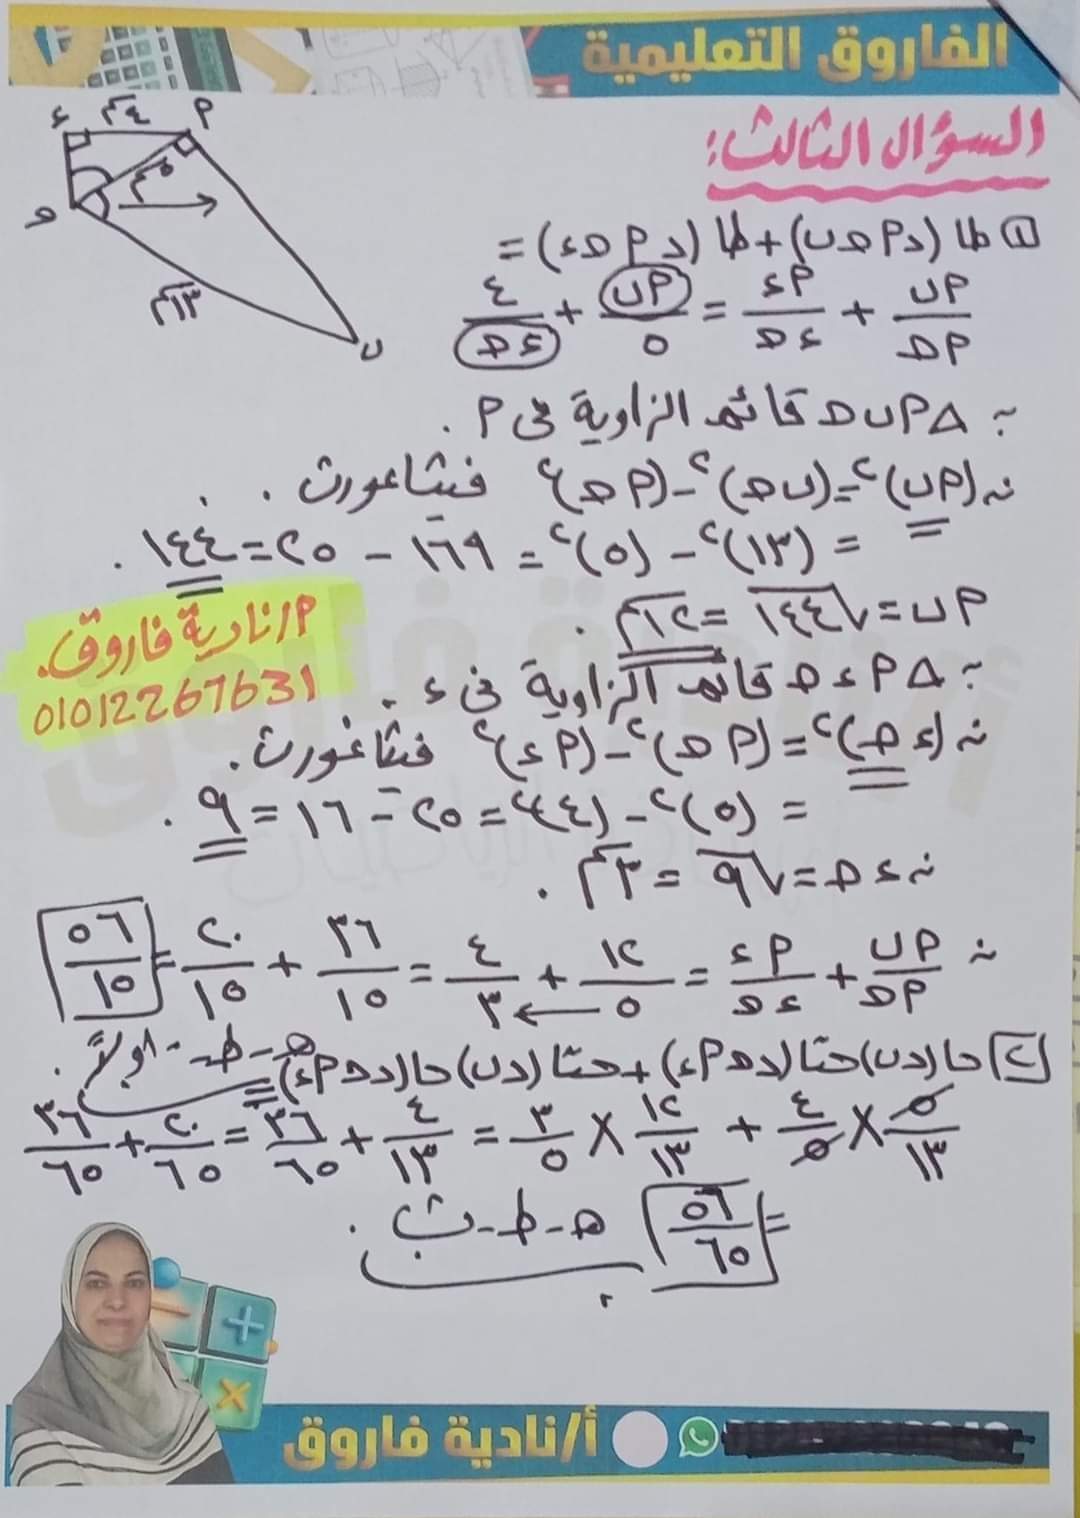 الفاروق التعليمية
السؤال الثالث:
ء ٤سم م
٥سم
هـ
١٣سم
ں
١ طا (د م هـ ں) + طا (د م هـ ء) =
م ں / م هـ + م ء / ء هـ = م ں / ٥ + ٤ / ء هـ
∵ Δ م ں هـ قائم الزاوية فى م .
∴ (م ں)٢ = (ں هـ)٢ - (م هـ)٢ فيثاغورث .
= (١٣)٢ - (٥)٢ = ١٦٩ - ٢٥ = ١٤٤ .
م ں = √١٤٤ = ١٢سم .
م/نادية فاروق.
01012267631
∵ Δ م ء هـ قائم الزاوية فى ء .
∴ (ء هـ)٢ = (م هـ)٢ - (م ء)٢ فيثاغورث .
= (٥)٢ - (٤)٢ = ٢٥ - ١٦ = ٩ .
∴ ء هـ = √٩ = ٣سم .
∴ م ں / م هـ + م ء / ء هـ = ١٢ / ٥ + ٤ / ٣ = ٣٦ / ١٥ + ٢٠ / ١٥ = ٥٦ / ١٥
هـ-ط- أولاً .
٢ حا (د ں) حتا (د هـ م ء) + حتا (د ں) حا (د هـ م ء) =
٥ / ١٣ × ٤ / ٥ + ١٢ / ١٣ × ٣ / ٥ = ٤ / ١٣ + ٣٦ / ٦٥ = ٢٠ / ٦٥ + ٣٦ / ٦٥
= ٥٦ / ٦٥ هـ-ط-ث .
أ/نادية فاروق